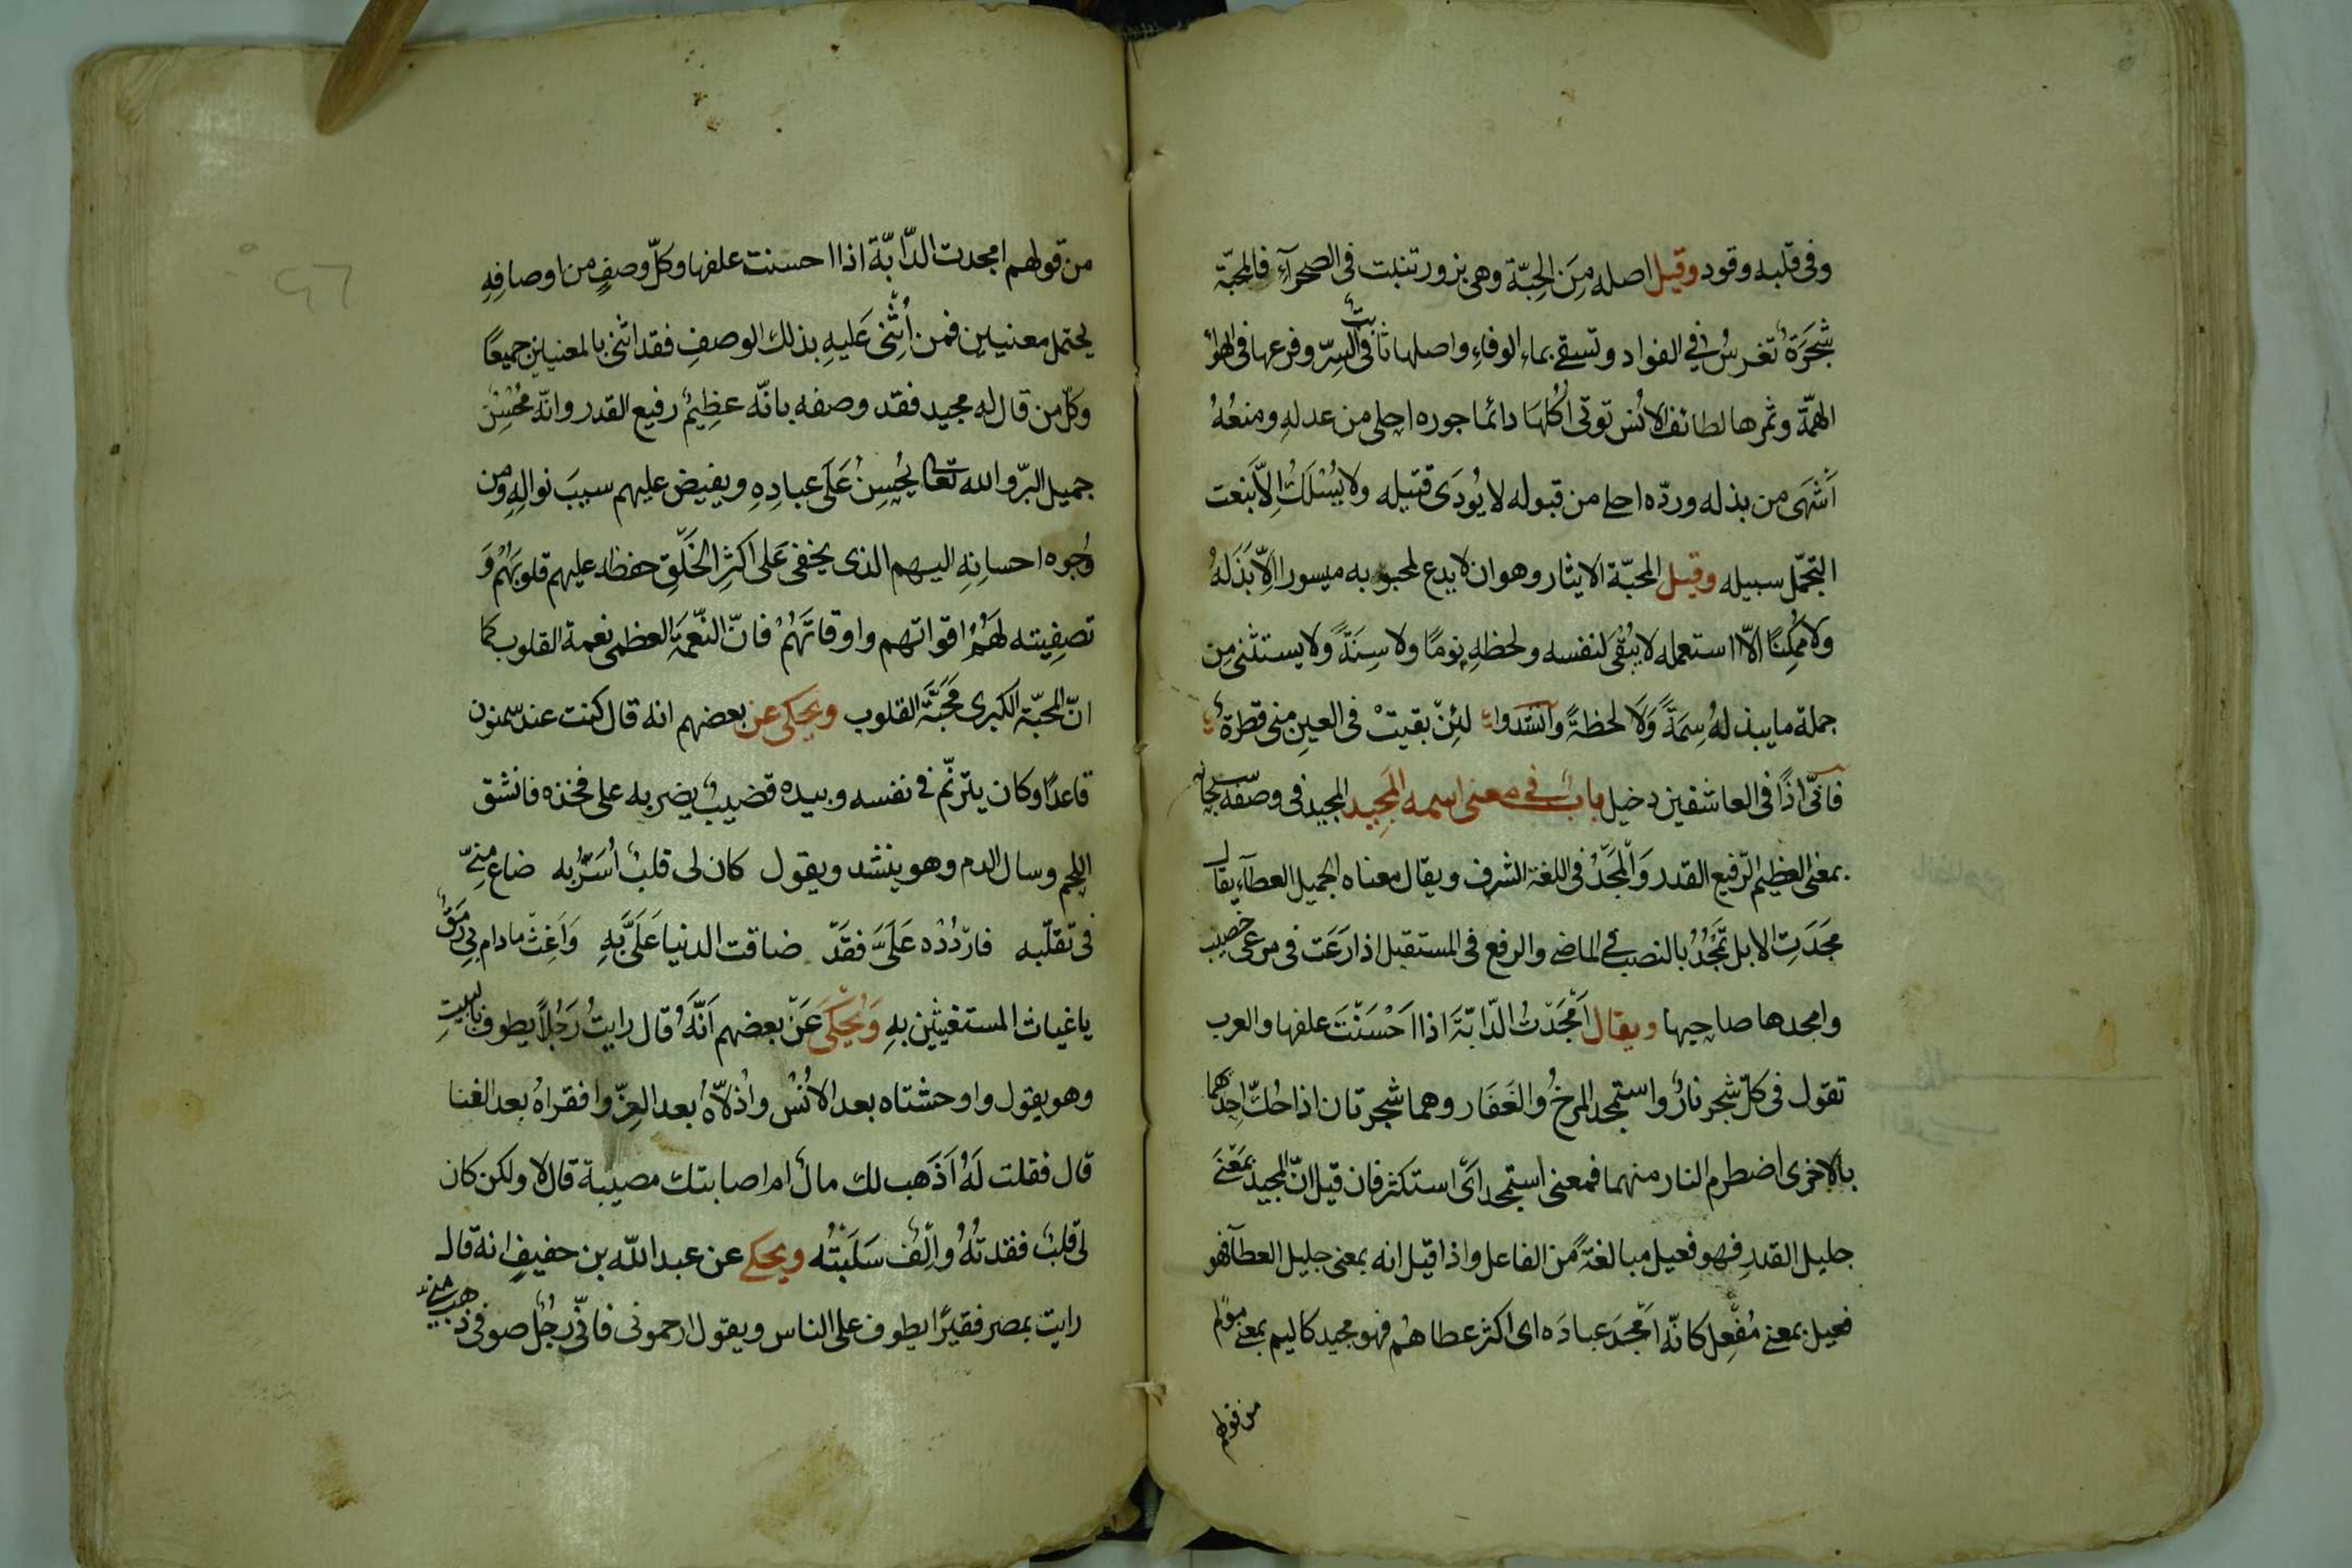 وفى قلبه وقود وقيل اصله مِنَ الحِبّة وهى بزور تنبت فى الصحرآءِ فالمحبّة
شَجَرَةٌ تغرسُ في الفواد وتسقى بماءِ الوفاءِ واصلها ثابتٌ فى السِرّ وفرعها فى الهوآ
الهمّة وثمرها لطائف الانُس توتى اُكُلها دائما جوره احلى من عدلهِ ومنعُهُ
اَشْهَى من بذله وردّه احلى من قبوله لا يُودَى قتيله ولا يُسْلَكُ اِلاّ بَنعت
التجمّل سبيله وقيل المحبّة الايثار وهو ان لا يدع لمحبوبه ميسورا اِلاّ بَذَلهُ
ولا مُمْكِنًا الاّ استعمله لا يُبْقى لنفسه ولحظهِ نومًا ولا سِنَةً ولا يستثنى مِن
جملة ما يبذلهُ سِمَةً وَلا لحظةً وانشدوا لئِنْ بقيتْ فى العينِ منى قطرة
فانّى اذًا فى العاشقين دخيل بابٌ فى معنى اسمه المَجِيد المجيد فى وصفه سبحانه
بمعنى العظيم الرّفيع القدر وَالْمَجْدُ فى اللغة الشرف ويقال معناه الجميل العطآء يقال
مَجَدَتِ الابل تَمْجُدُ بالنصب فى الماضى والرفع فى المستقبل اذا رَعَت فى مرعى خصيب
وامجدها صاحبها ويقال اَمْجَدْتُ الدّابّةَ اذا اَحْسَنْتَ علفها والعرب
تقول فى كلّ شجر نارٌ واستمجد المرخُ والعَفَار وهما شجرتان اذا حُكّ احدهما
بالاخرى اضطرم النار منهما فمعنى استمجد اَىْ استكثر فان قيل انّ المجيد بمَعْنَى
جليل القدرِ فهو فعيل مبالغةً من الفاعل واذا قيل انه بمعنى جليل العطآ فهو
فعيل بمعنى مُفْعِل كانّه اَمْجَدَ عبادَه اى اكثر عطاهُم فهو مجيد كاليم بمعنى مولم
من قولهم
من قولهم امجدت الدّابّة اذا احسنت علفها وكلّ وصفٍ من اوصافِهِ
يحتمل معنيين فمن اُثْنِىَ عَليهِ بذلك الوصفِ فقد اثنى بالمعنيين جميعًا
وكلّ من قال له مجيد فقد وصفه بانّه عظِيمٌ رفيع القدر وانّه مُحْسِنٌ
جميل البرّ والله تعالى يُحْسِنُ عَلَى عبادِهِ ويفيض عليهم سببَ نوالِهِ ومن
وُجوه احسانِهِ اليهم الذى يخفى عَلى اكثِر الخَلْقِ حفظه عليهم قلوبَهُمْ وَ
تصفِيته لهَمُ اقواتهم واوقاتَهُمْ فانّ النّعْمَة العظمى نعمة القلوب كما
انّ المحبّة الكبرى مَحَبَّة القلوب ويحكى عن بعضهم انه قال كنت عند سمنون
قاعدًا وكان يترنّم فى نفسه وبيده قضيبٌ يضربه على فخذه فانشق
اللحم وسال الدم وهو ينشد ويقول كان لى قلبٌ اُسَرُّ به ضاع منّى
فى تقلّبه فارْدُدْه عَلَىَّ فقَدْ ضاقت الدنيا عَلَىَّ بِهِ وَاَغِثْ ما دام بِى رَمَقٌ
ياغياث المستغيثين بهِ وَيُحْكَى عَنْ بعضهم اَنَّهُ قال رايتُ رَجُلاً يطوف بالبيتِ
وهو يقول واوحشتاه بعد الانُسْ واذُلاّه بعد العزّ وافقراهُ بعد الغنا
قال فقلت لَهُ اَذَهب لك مالٌ ام اصابتك مصيبة قال لا ولكن كان
لى قلبٌ فقدتُهُ واِلْفٌ سَلَبْتُه ويحكى عن عبد الله بن حفيفٍ انه قال
رايت بمصر فقيرًا يطوف على الناس ويقول ارحمونى فانّى رجُلٌ صوفى ذهب منى